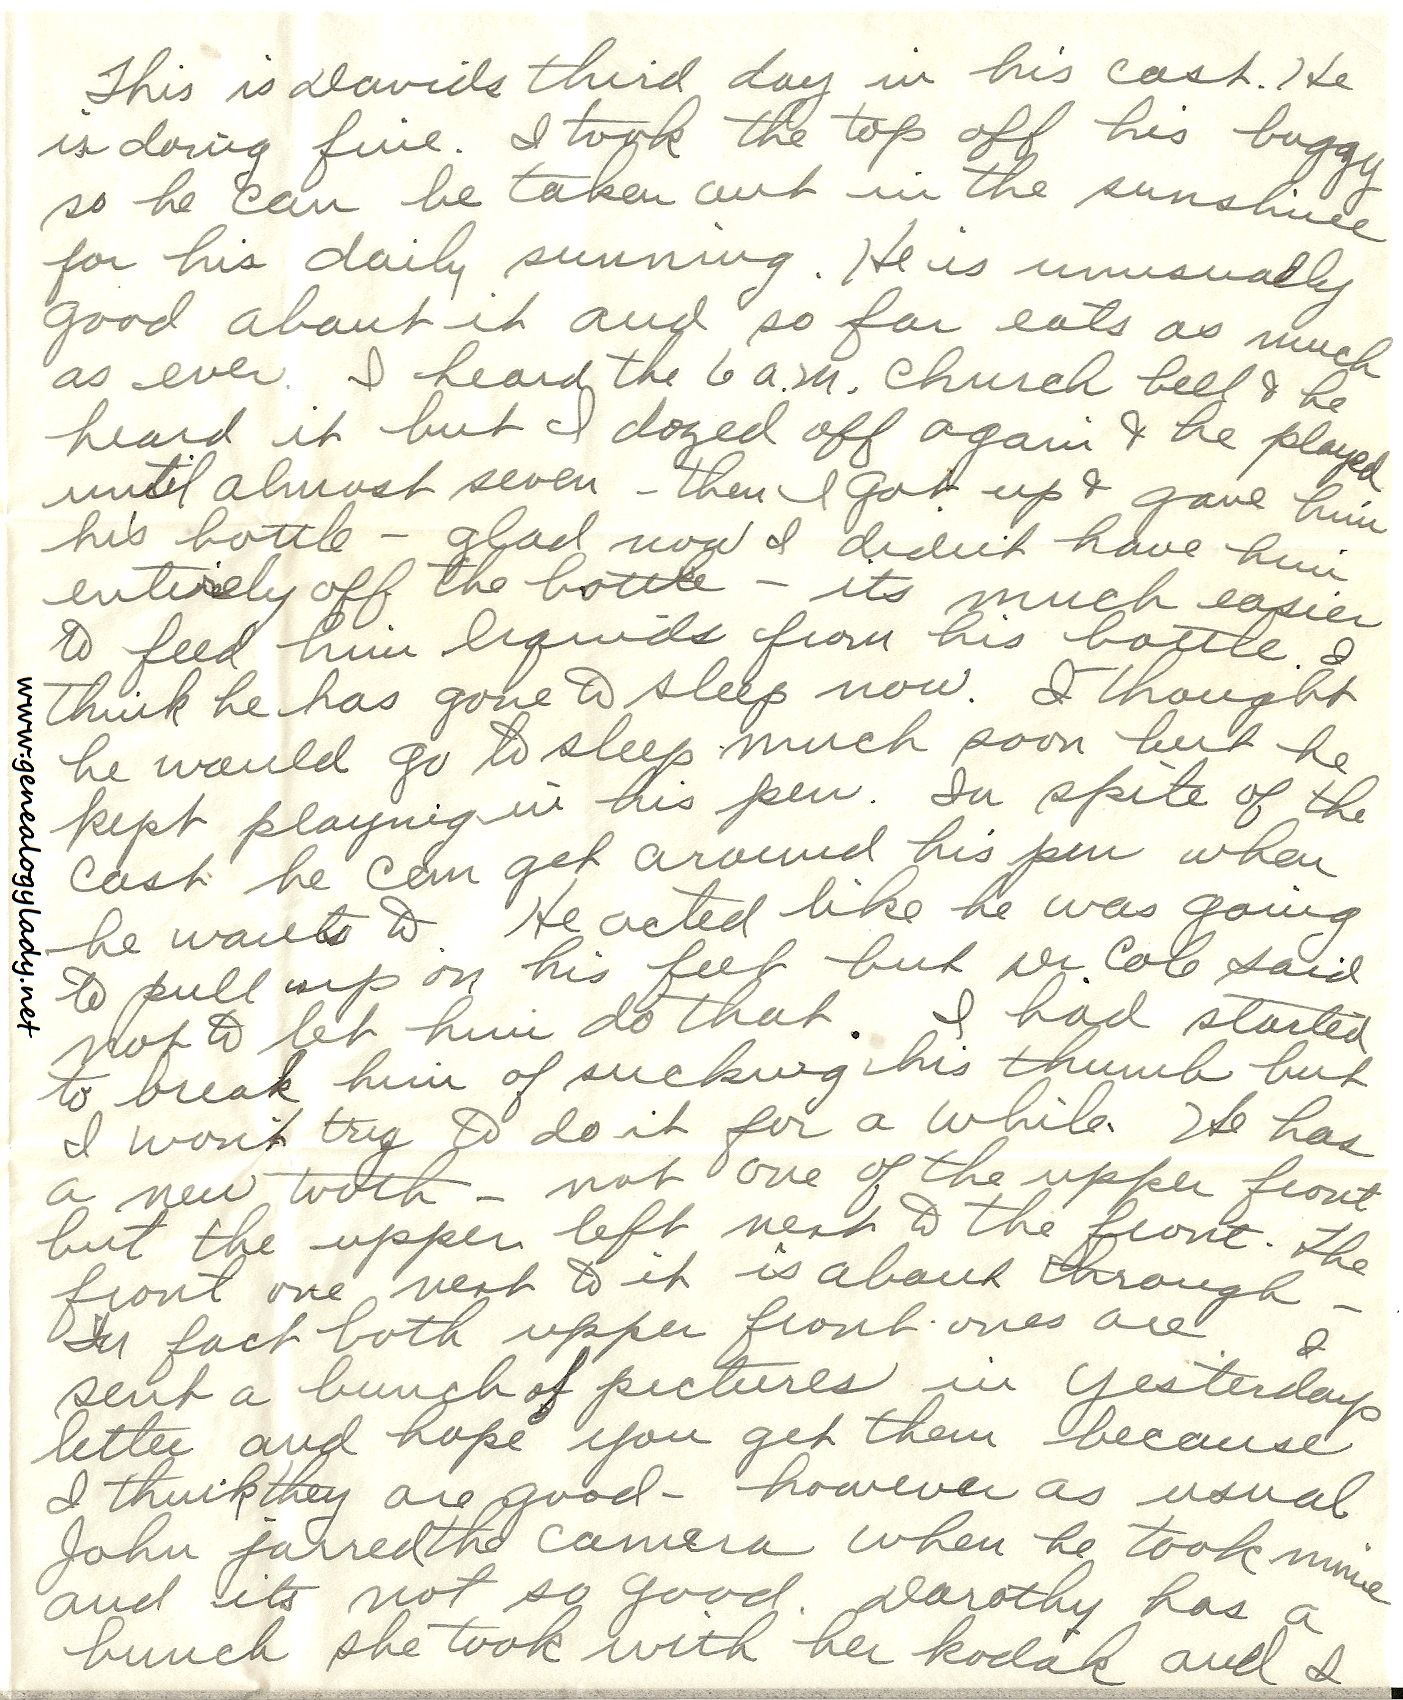 This is Davids third day in his cast. He
is doing fine. I took the top off his buggy
so he can be taken out in the sunshine
for his daily sunning. He is unusually
good about it and so far eats as much
as ever. I heard the 6 a.m. church bell & he
heard it but I dozed off again & he played
until almost seven - then I got up & gave him
his bottle - glad now I didn't have him
entirely off the bottle - its much easier
to feed him liquids from his bottle. I
think he has gone to sleep now. I thought
he would go to sleep much soon but he
kept playing in his pen. In spite of the
cast he can get around his pen when
he wants to. He acted like he was going
to pull up on his feet but Dr. Cole said
not to let him do that. I had started
to break him of sucking his thumb but
I won't try to do it for a while. He has
a new tooth - not one of the upper front
but the upper left next to the front. The
front one next to it is about through -
In fact both upper front ones are I
sent a bunch of pictures in yesterdays
letter and hope you get them because
I think they are good - however as usual
John jarred the camera when he took mine
and its not so good. Dorothy has a
bunch she took with her kodak and I
www.genealogylady.net